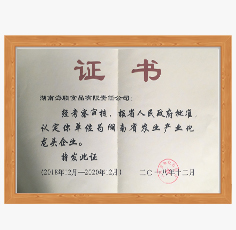 证书
湖南省粮食品有限责任公司:
经考察审核,报省人民政府批准,
认定你单位为湖南省农业产业化
龙头企业。
特发此证
(2018年12月—2020年12月) 二〇一八年十二月